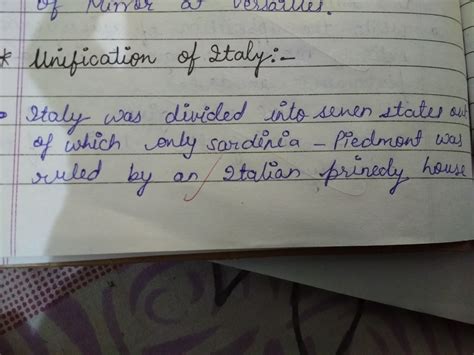 of Mirror at Versailles.
* Unification of Italy:-
Italy was divided into seven states out
of which only sardinia - Piedmont was
ruled by an Italian princely house